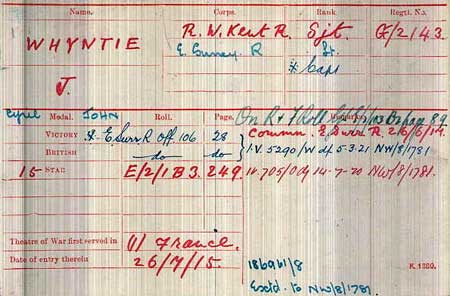 Name. Corps. Rank. Regtl. No.
WHYNTIE R. W. Kent R. Sjt. G/2143.
E. Surrey R. Lt.
J. * Capt
Cyril JOHN
Medal. Roll. Page. Remarks.
On R & F Roll Page 89
VICTORY * E Surr R Off. 106 28 Commn. E Surr R. 26/6/17.
BRITISH —do— —do— I.V. 5290/W df 5.3.21 NW/8/1781
15 STAR E/2/1 B3. 249. 14-7-20 NW/8/1781.
Theatre of War first served in (1) France.
Date of entry therein 26/7/15.
K. 1380.
Exctd. to NW/8/1781.